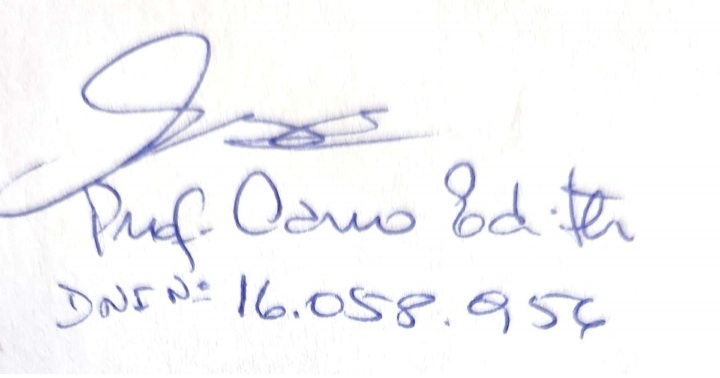 Prof. Cano Edith
DNI Nº 16.058.954